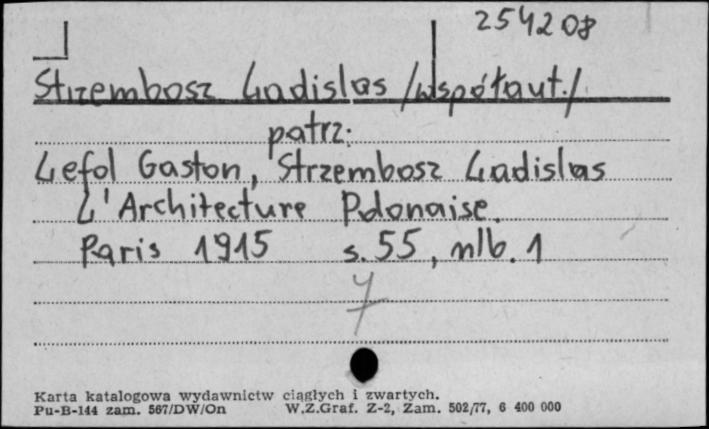 254208
Strzembosz Ladislas /współaut./
patrz:
Lefol Gaston, Strzembosz Ladislas
L'Architecture Polonaise.
Paris 1915 s. 55, nlb. 1
7
Karta katalogowa wydawnictw ciągłych i zwartych.
Pu-B-144 zam. 567/DW/On W.Z.Graf. Z-2, Zam. 502/77, 6 400 000